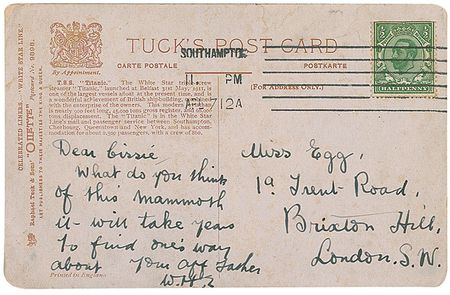 TUCK'S POST CARD
CARTE POSTALE
POSTKARTE
(FOR ADDRESS ONLY.)
By Appointment.
SOUTHAMPTON
PM
12A
HALFPENNY
CELEBRATED LINERS. "WHITE STAR LINE."
Raphael Tuck & Sons' "OILETTE"
T.S.S. "Titanic." The White Star
steamer "Titanic," launched at Belfast 31st May, 1911, is
one of the largest vessels afloat at the present time, and is
a wonderful achievement of British shipbuilding,
enterprise of the owners. This modern
feet long, 45,000 tons gross register, and
tons displacement. The "Titanic" is in the White Star
Line's mail and passenger service between Southampton,
Cherbourg, Queenstown and New York, and has accom-
modation for about 2,500 passengers, with a crew of 860.
Dear Cissie,
What do you think
of this mammoth
it will take years
to find one's way
about Your aff father
W.H.E
Printed in England
Miss Egg,
19 Trent Road,
Brixton Hill,
London. S.W.